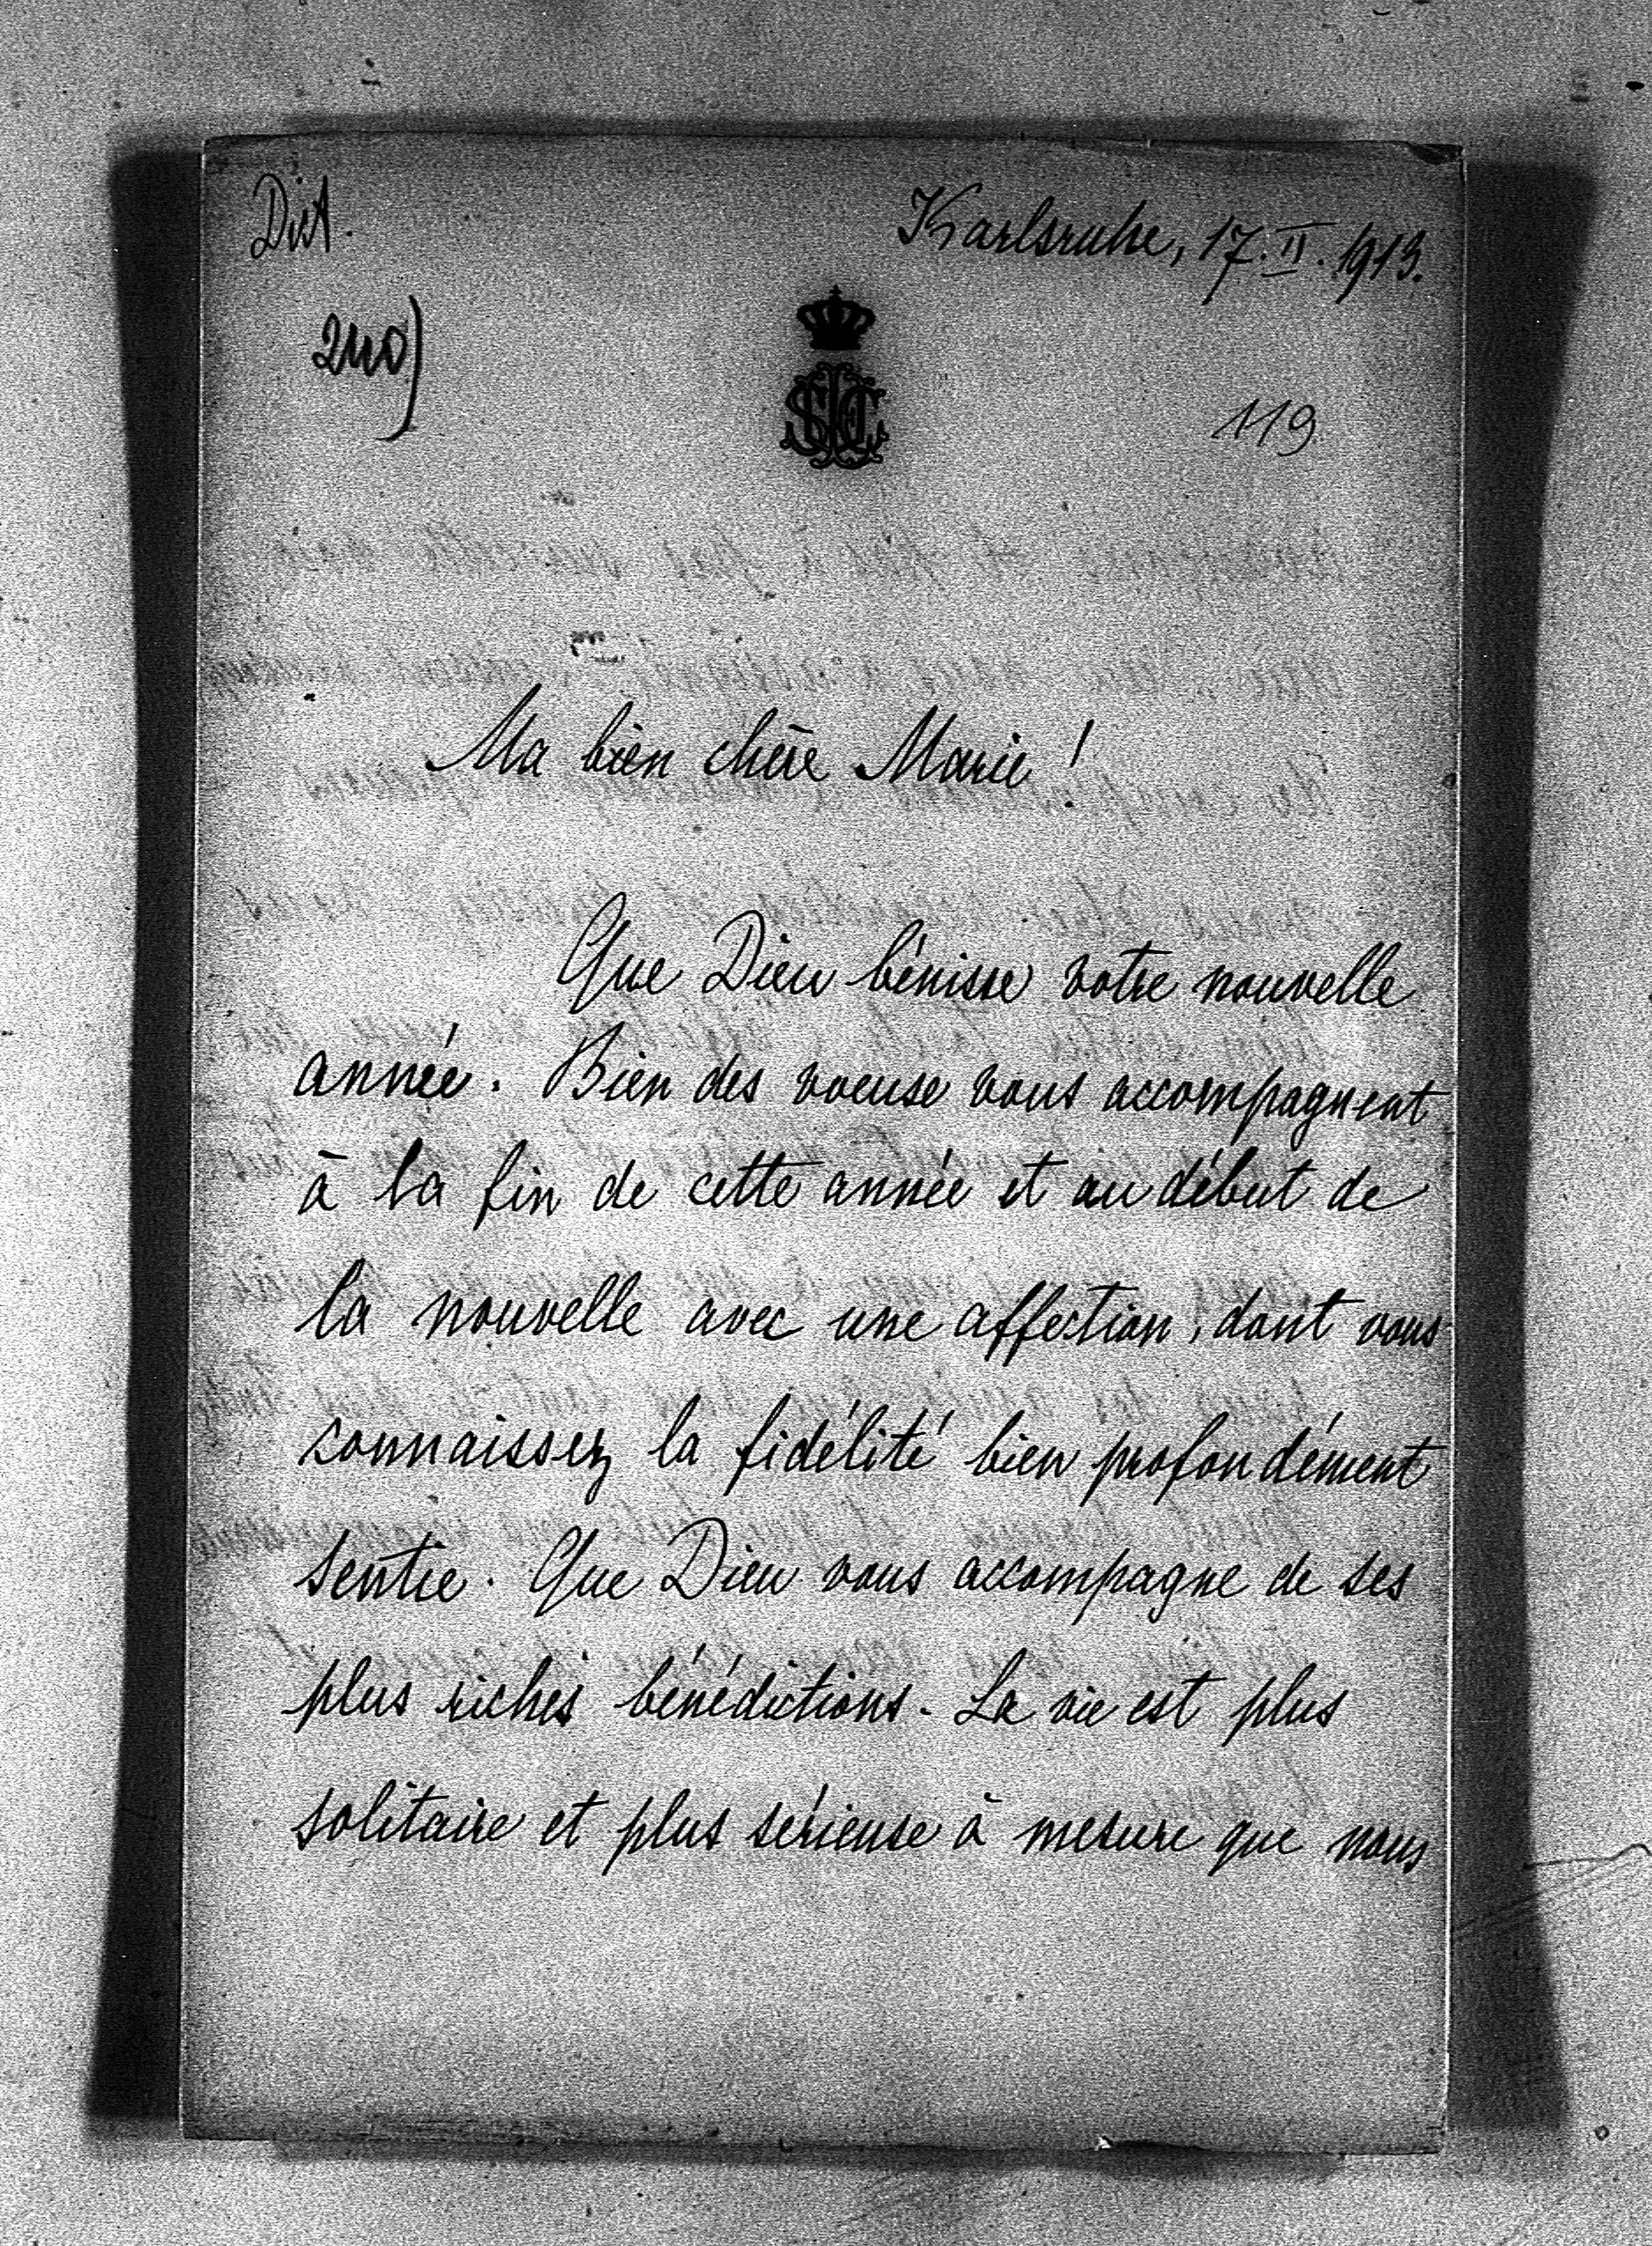 Dict.
Karlsruhe, 17. II. 1913.
240)
119
Ma bien chère Marie !
Que Dieu bénisse votre nouvelle
année. Bien des voeuse vous accompagnent
à la fin de cette année et au début de
la nouvelle avec une affection, dont vous
connaissez la fidélité bien profondément
sentie. Que Dieu vous accompagne de ses
plus riches bénédictions. La vie est plus
solitaire et plus sérieuse à mesure que nous